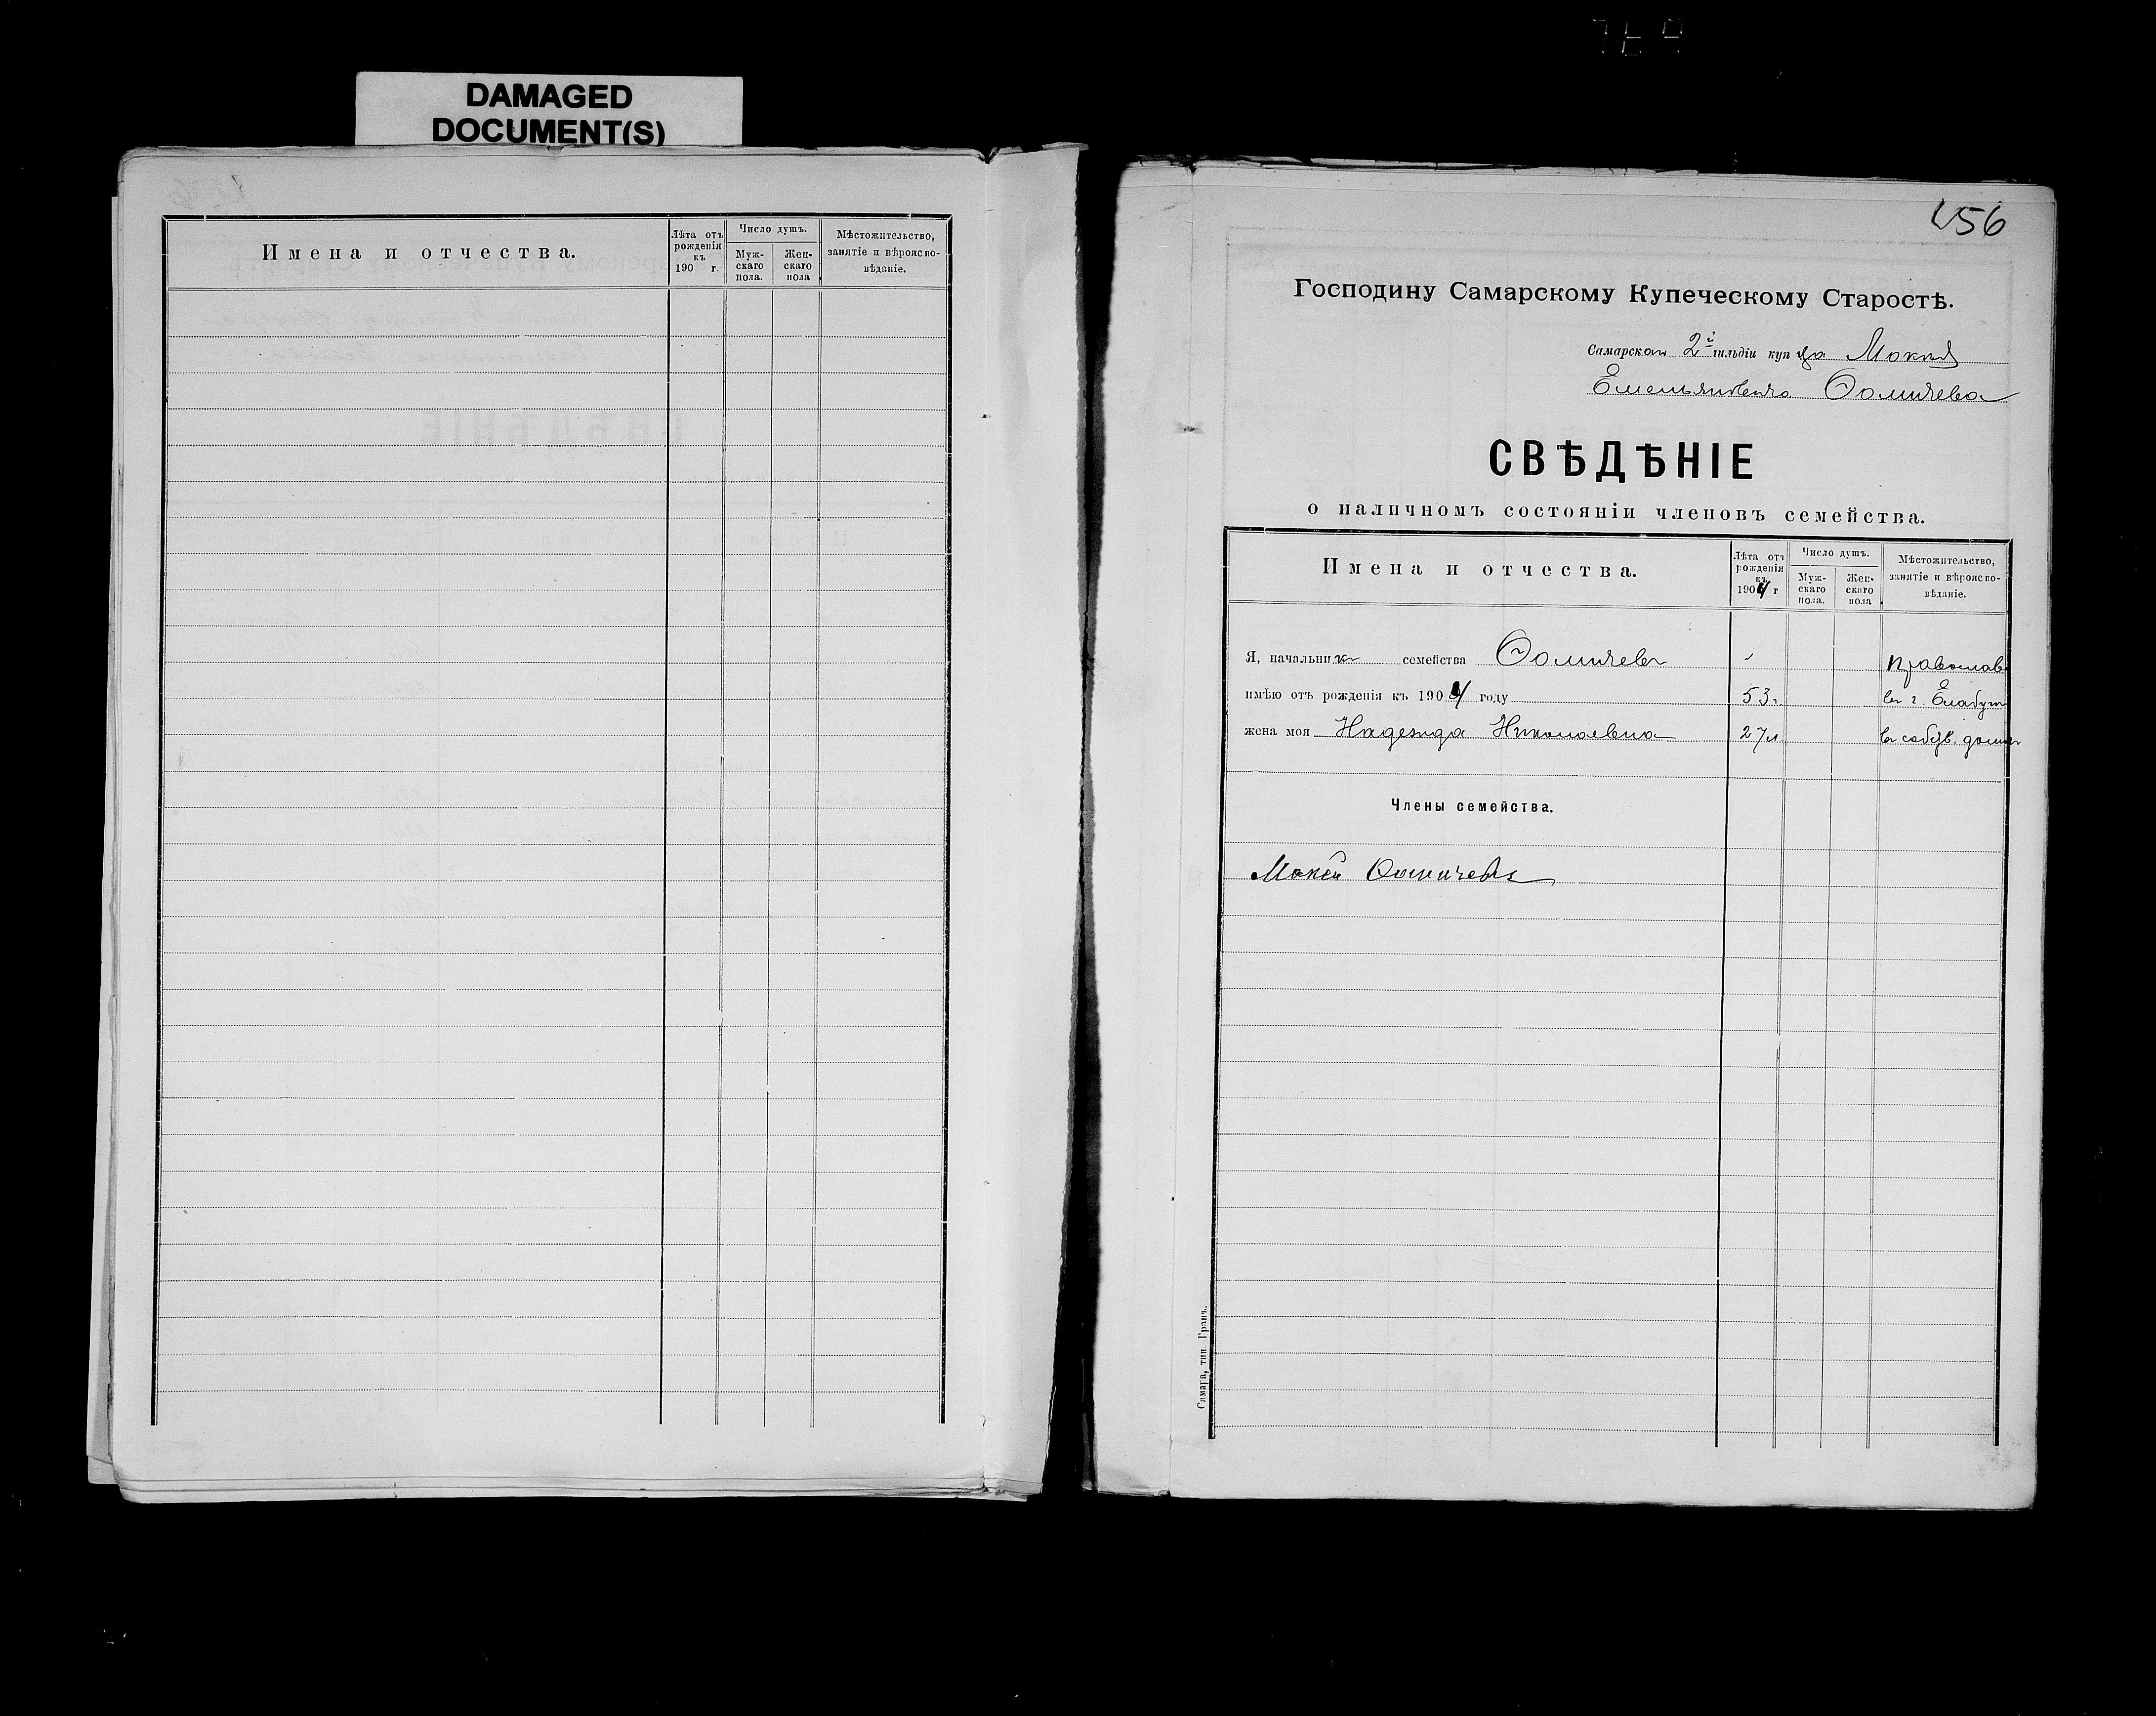 DAMAGED
DOCUMENT(S)
Имена и отчества.
Лѣта отъ рожденія къ 190 г.
Число душъ.
Муж-скаго пола.
Жен-скаго пола
Мѣстожительство, занятіе и вѣроисповѣданіе.
456
Господину Самарскому Купеческому Старостѣ.
Самарскаго 2й гильдіи купца Мокія
Емельяновича Ѳомичева
СВѢДѢНІЕ
о наличномъ состояніи членовъ семейства.
Имена и отчества.
Лѣта отъ рожденія къ 1904 г
Число душъ.
Муж-скаго пола.
Жен-скаго пола
Мѣстожительство, занятіе и вѣроисповѣданіе.
Я, начальникъ семейства Ѳомичевъ Православ
имѣю отъ рожденія къ 1904 году 53 г. въ г. Елабуг
жена моя Надежда Николаевна 27 л въ собств. домѣ
Члены семейства.
Мокій Ѳомичевъ
Самара, тип. Гранъ.